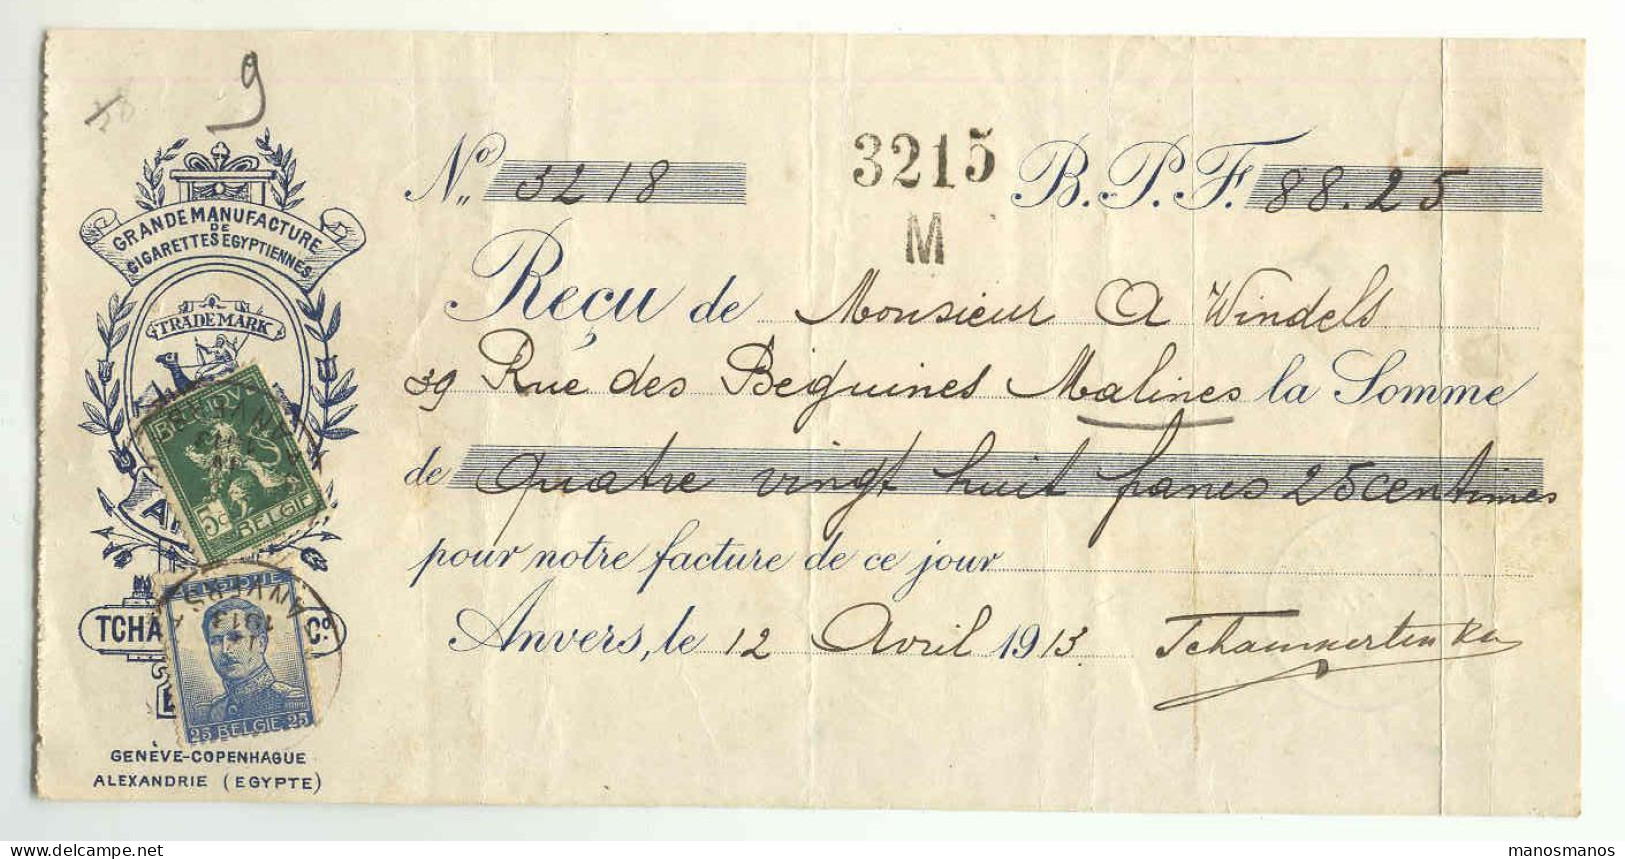 9
GRANDE MANUFACTURE
DE
CIGARETTES EGYPTIENNES
TRADE MARK
BELGIQUE
5c BELGIË
ANVERS
BELGIQUE
ANVERS
1913
25 BELGIË 25
TCHA Co.
GENÈVE-COPENHAGUE
ALEXANDRIE (EGYPTE)
No. 3218 3215 B.P.F. 88.25
M
Reçu de Monsieur A Windels
39 Rue des Béguines Malines la Somme
de quatre vingt huit francs 25 centimes
pour notre facture de ce jour
Anvers, le 12 Avril 1913.
manosmanos